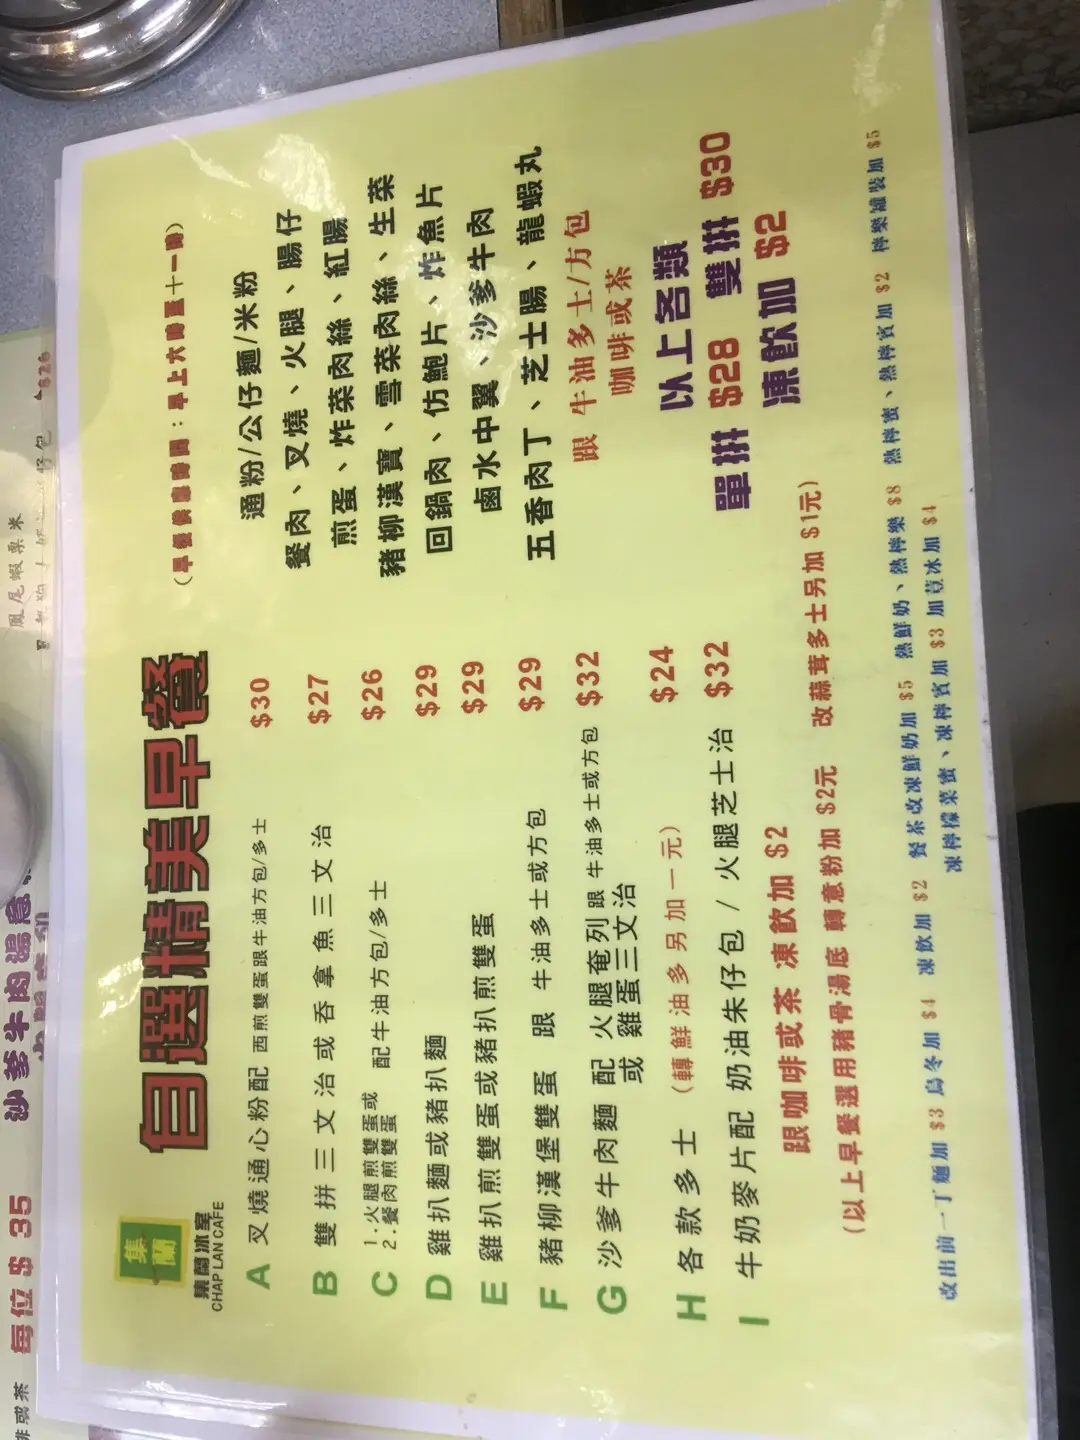 集蘭
集蘭冰室
CHAP LAN CAFE
自選精美早餐
(早餐供應時間：早上六時至十一時)
A 叉燒通心粉配 西煎雙蛋跟牛油方包/多士 $30
B 雙拼三文治或吞拿魚三文治 $27
C 1.火腿煎雙蛋或
2.餐肉煎雙蛋 配牛油方包/多士 $26
D 雞扒麵或豬扒麵 $29
E 雞扒煎雙蛋或豬扒煎雙蛋 $29
F 豬柳漢堡雙蛋 跟 牛油多士或方包 $29
G 沙爹牛肉麵 配 火腿奄列 跟 牛油多士或方包 $32
或 雞蛋三文治
H 各款多士 (轉鮮油多另加一元) $24
I 牛奶麥片配 奶油朱仔包 / 火腿芝士治 $32
跟咖啡或茶 凍飲加 $2
(以上早餐選用豬骨湯底 轉意粉加 $2元 改蒜茸多士另加 $1元)
通粉/公仔麵/米粉
餐肉、叉燒、火腿、腸仔
煎蛋、炸菜肉絲、紅腸
豬柳漢寶、雪菜肉絲、生菜
回鍋肉、仿鮑片、炸魚片
鹵水中翼、沙爹牛肉
五香肉丁、芝士腸、龍蝦丸
跟 牛油多士/方包
咖啡或茶
以上各類
單拼 $28 雙拼 $30
凍飲加 $2
改出前一丁麵加 $3 烏冬加 $4 凍飲加 $2 餐茶改凍鮮奶加 $5 熱鮮奶、熱檸樂 $8 熱檸蜜、熱檸賓加 $2 檸樂罐裝加 $5
凍檸檬菜蜜、凍檸賓加 $3 加荳冰加 $4
沙爹牛肉湯
每位 $ 35
啡或茶
鳳尾蝦粟米